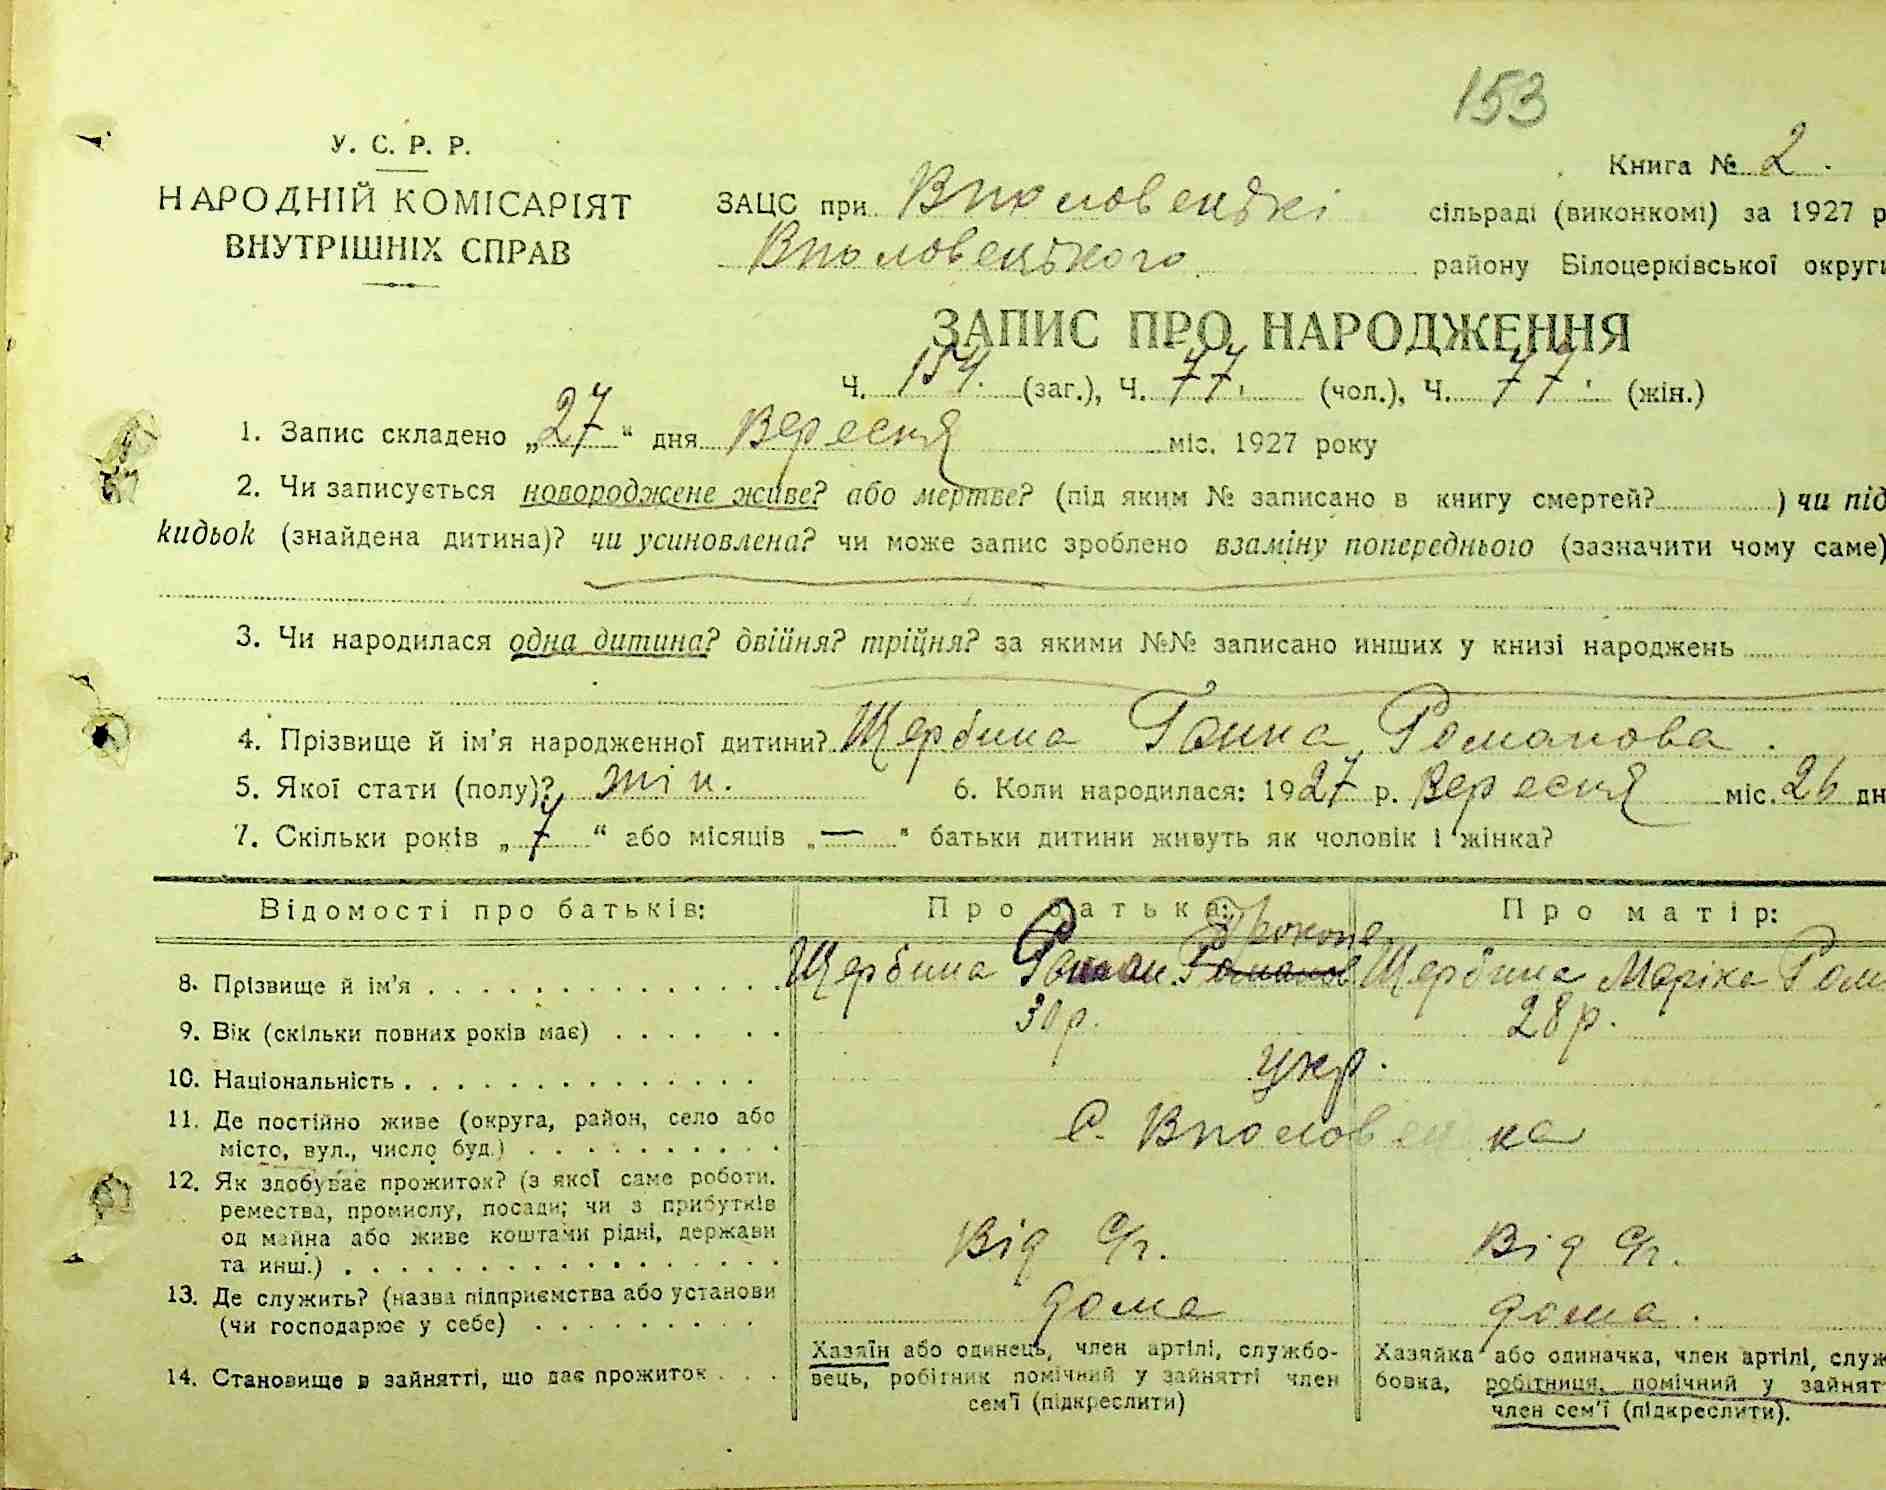 153
У. С. Р. Р.
НАРОДНІЙ КОМІСАРІЯТ
ВНУТРІШНІХ СПРАВ
Книга № 2.
ЗАЦС при Вполовецькі сільраді (виконкомі) за 1927 р
Вполовецького району Білоцерківської округи
ЗАПИС ПРО НАРОДЖЕННЯ
Ч. 154. (заг.), Ч. 77. (чол.), Ч. 77. (жін.)
1. Запис складено „27“ дня Вересня міс. 1927 року
2. Чи записується новороджене живе? або мертве? (під яким № записано в книгу смертей? ) чи під
кидьок (знайдена дитина)? чи усиновлена? чи може запис зроблено взаміну попереднього (зазначити чому саме)
3. Чи народилася одна дитина? двійня? трійня? за якими №№ записано инших у книзі народжень
4. Прізвище й ім'я народженної дитини? Щербина Ганна Романова.
5. Якої стати (полу)? жін. 6. Коли народилася: 1927 р. Вересня міс. 26 дн
7. Скільки років „7“ або місяців „—“ батьки дитини живуть як чоловік і жінка?
Відомості про батьків: Про батька: Про матір:
Прокопо
8. Прізвище й ім'я Щербина Роман Романов Щербина Маріка Ром
9. Вік (скільки повних років має) 30 р. 28 р.
10. Національність укр.
11. Де постійно живе (округа, район, село або
місто, вул., число буд.) с. Вполовецка
12. Як здобуває прожиток? (з якої саме роботи,
ремества, промислу, посади; чи з прибутків
од майна або живе коштами рідні, держави
та инш.) Від с/г. Від с/г.
13. Де служить? (назва підприємства або установи
(чи господарює у себе) дома дома.
14. Становище в зайнятті, що дає прожиток
Хазяїн або одинець, член артілі, службо-
вець, робітник помічний у зайнятті член
сем'ї (підкреслити)
Хазяйка або одиначка, член артілі, служ
бовка, робітниця, помічний у зайнят
член сем'ї (підкреслити).